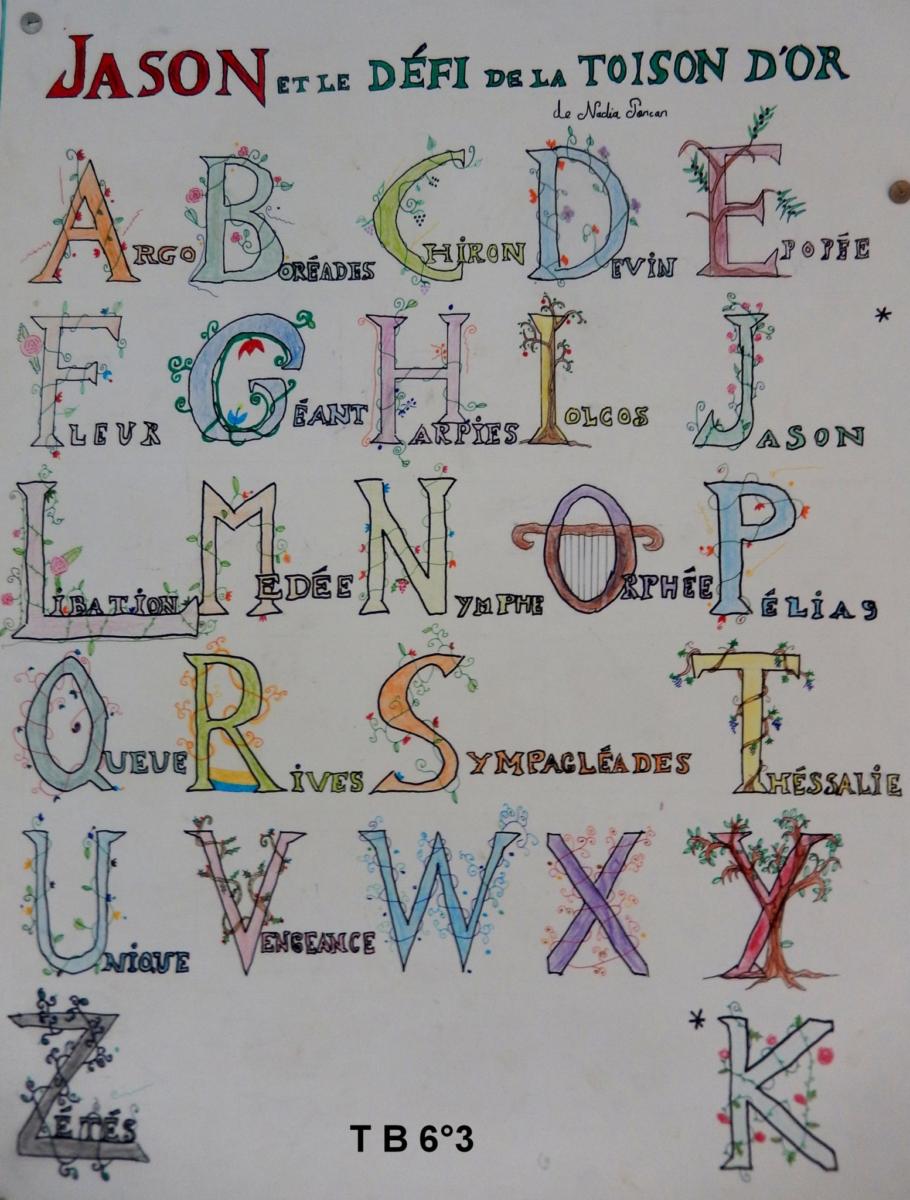 JASON ET LE DÉFI DE LA TOISON D'OR
de Nadia Porcar
ARGO BORÉADES CHIRON DEVIN EPOPÉE
FLEUR GÉANT HARPIES IOLCOS JASON *
LIBATION MEDÉE NYMPHE ORPHÉE PÉLIAS
QUEUE RIVES SYMPAGLÉADES THÉSSALIE
UNIQUE VENGEANCE W X Y
ZÉTÉS * K
T B 6°3